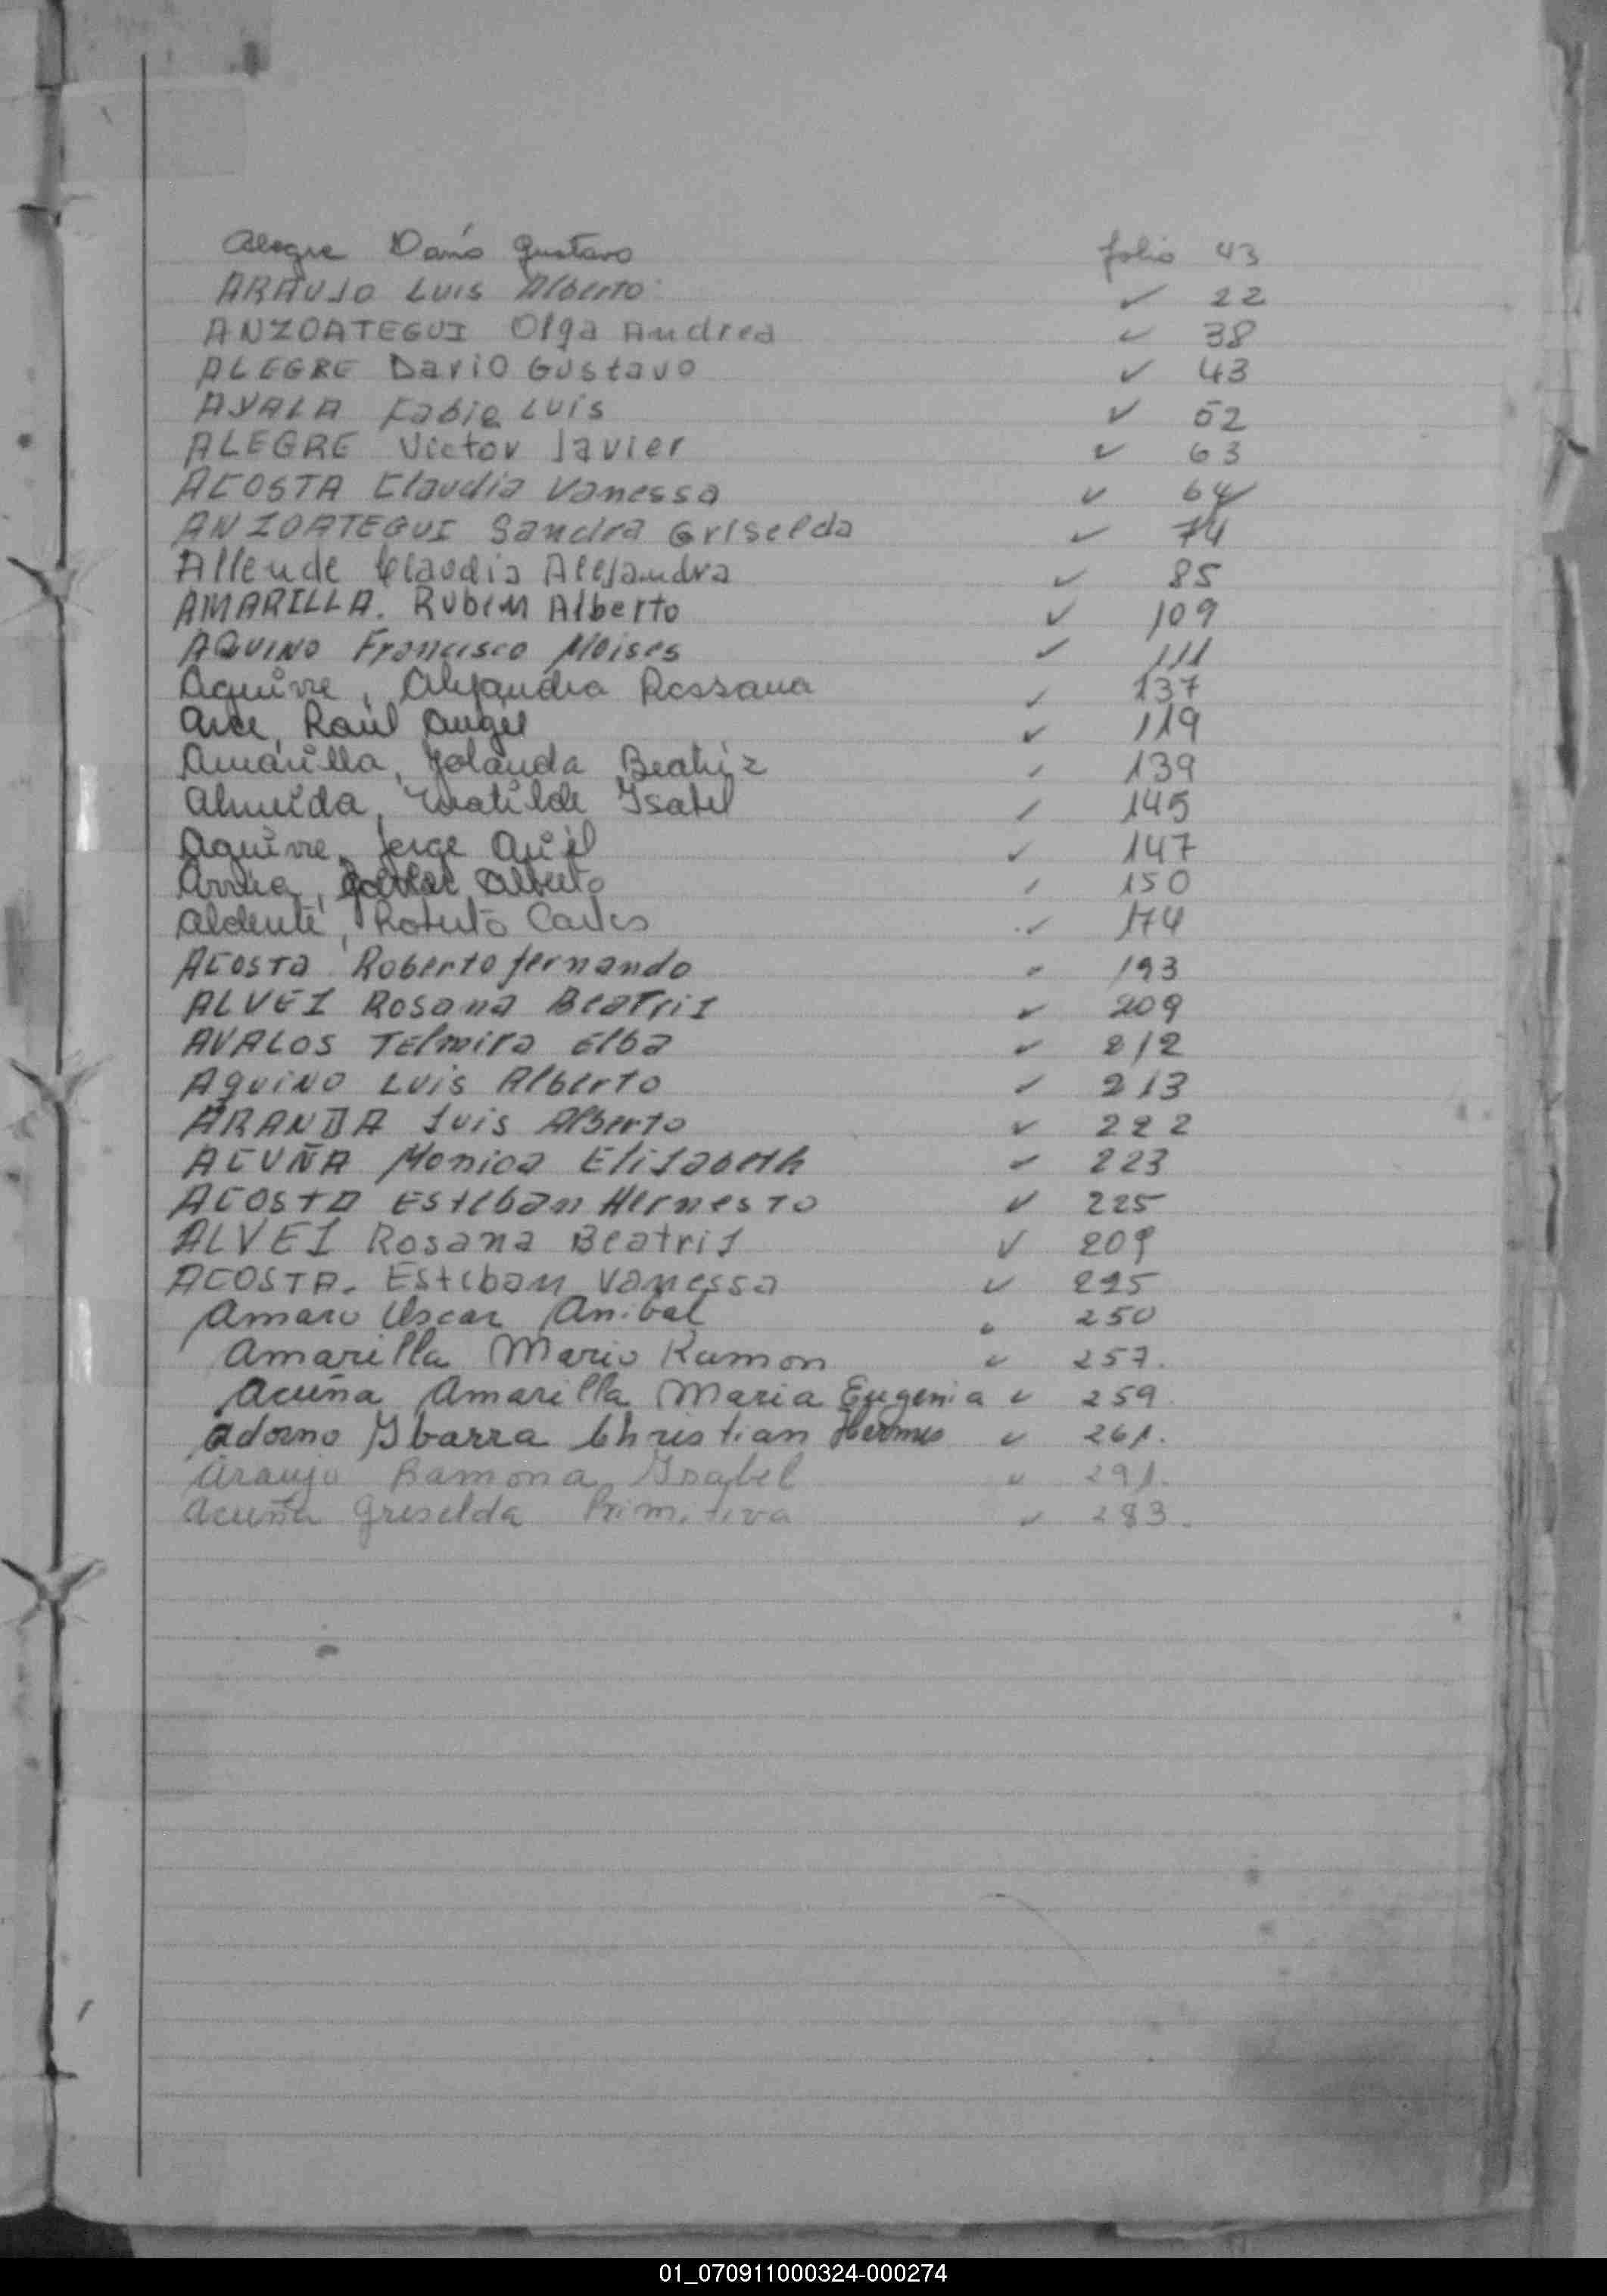 Alegre Darío Gustavo folio 43
ARAUJO Luis Alberto ✓ 22
ANZOATEGUI Olga Andrea ✓ 38
ALEGRE Dario Gustavo ✓ 43
AYALA Fabio Luis ✓ 52
ALEGRE Victor Javier ✓ 63
ACOSTA Claudia Vanessa ✓ 64
ANZOATEGUI Sandra Griselda ✓ 74
Allende Claudia Alejandra ✓ 85
AMARILLA. Ruben Alberto ✓ 109
AQUINO Francisco Moises ✓ 111
Aguirre, Alejandra Rossana ✓ 137
Arce, Raúl Angel ✓ 119
Amarilla, Yolanda Beatriz ✓ 139
Almeida, Matilde Ysabel ✓ 145
Aguirre, Jorge Ariel ✓ 147
Arrúa, Alberto ✓ 150
Aldente, Roberto Carlos ✓ 174
ACOSTA Roberto fernando ✓ 193
ALVEZ Rosana Beatriz ✓ 209
AVALOS Telmira Elba ✓ 212
Aquino Luis Alberto ✓ 213
ARANDA Luis Alberto ✓ 222
ACUÑA Monica Elizabeth ✓ 223
ACOSTA Esteban Hernesto ✓ 225
ALVEZ Rosana Beatriz ✓ 209
ACOSTA. Esteban Vanessa ✓ 225
Amaro Oscar Anibal 250
Amarilla Mario Ramon ✓ 257.
Acuña Amarilla Maria Eugenia ✓ 259.
Adorno Ybarra Christian Hermes ✓ 261.
Araujo Ramona Ysabel ✓ 291.
Acuña Griselda Primitiva ✓ 283.
01_070911000324-000274